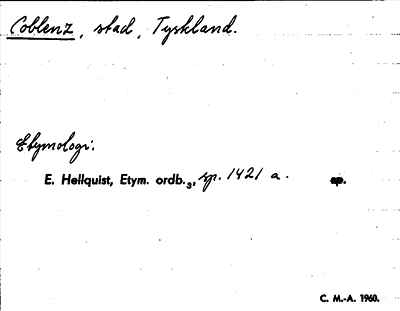 Coblenz, stad, Tyskland.
Etymologi.
E. Hellquist, Etym. ordb.3, sp. 1421 a. sp.
C. M.-A. 1960.